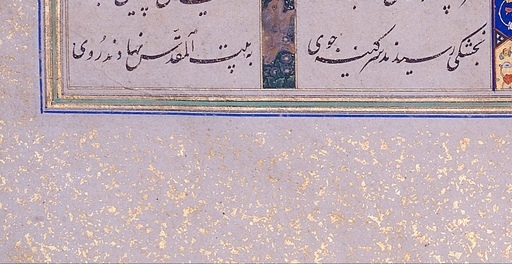 بخشکی رسیدند سر کینه جوی
ببیت المقدّس نهادند روی